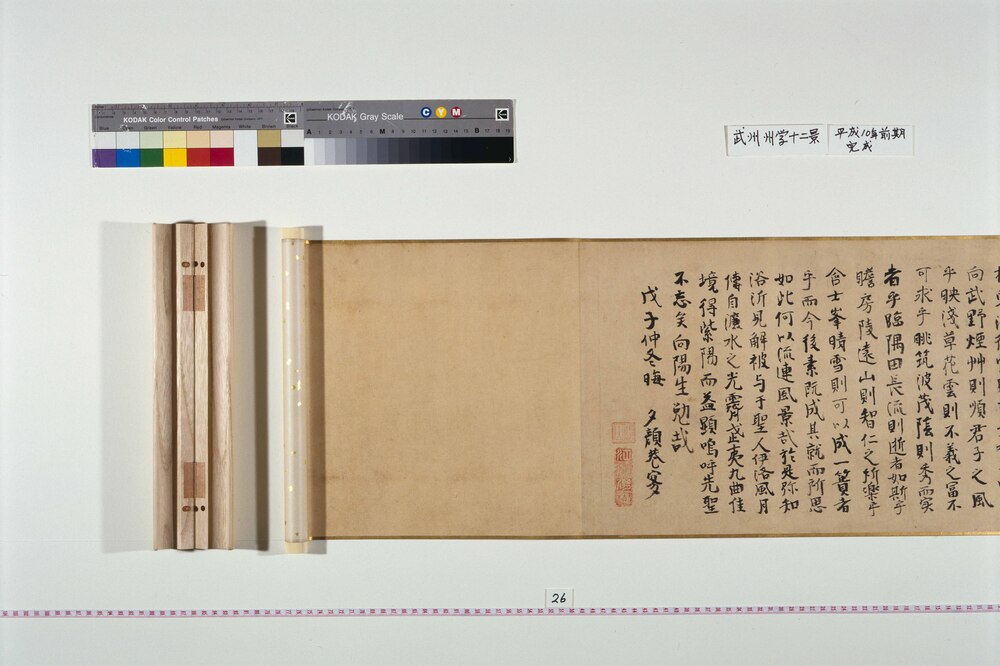 KODAK Color Control Patches
Blue Cyan Green Yellow Red Magenta White Brown Black
KODAK Gray Scale
C Y M
Kodak
A 1 2 3 4 5 6 M 8 9 10 11 12 13 14 15 B 17 18 19
武州州学十二景
平成10年前期
完成
向武野煙艸則順君子之風
乎映淺草花雲則不義之富不
可求乎眺筑波茂陰則秀而実
者乎臨隅田長流則逝者如斯乎
瞻房陵遠山則智仁之所樂乎
含士峯晴雪則可以成一簣者
乎而今後素既成其就而所思
如此何以流連風景哉於是弥知
浴沂見解被与于聖人伊洛風月
傳自濂水之光霽武夷九曲佳
境得紫陽而益顕嗚呼先聖
不忘矣向陽生勉哉
戊子仲冬晦 夕顔巷
26